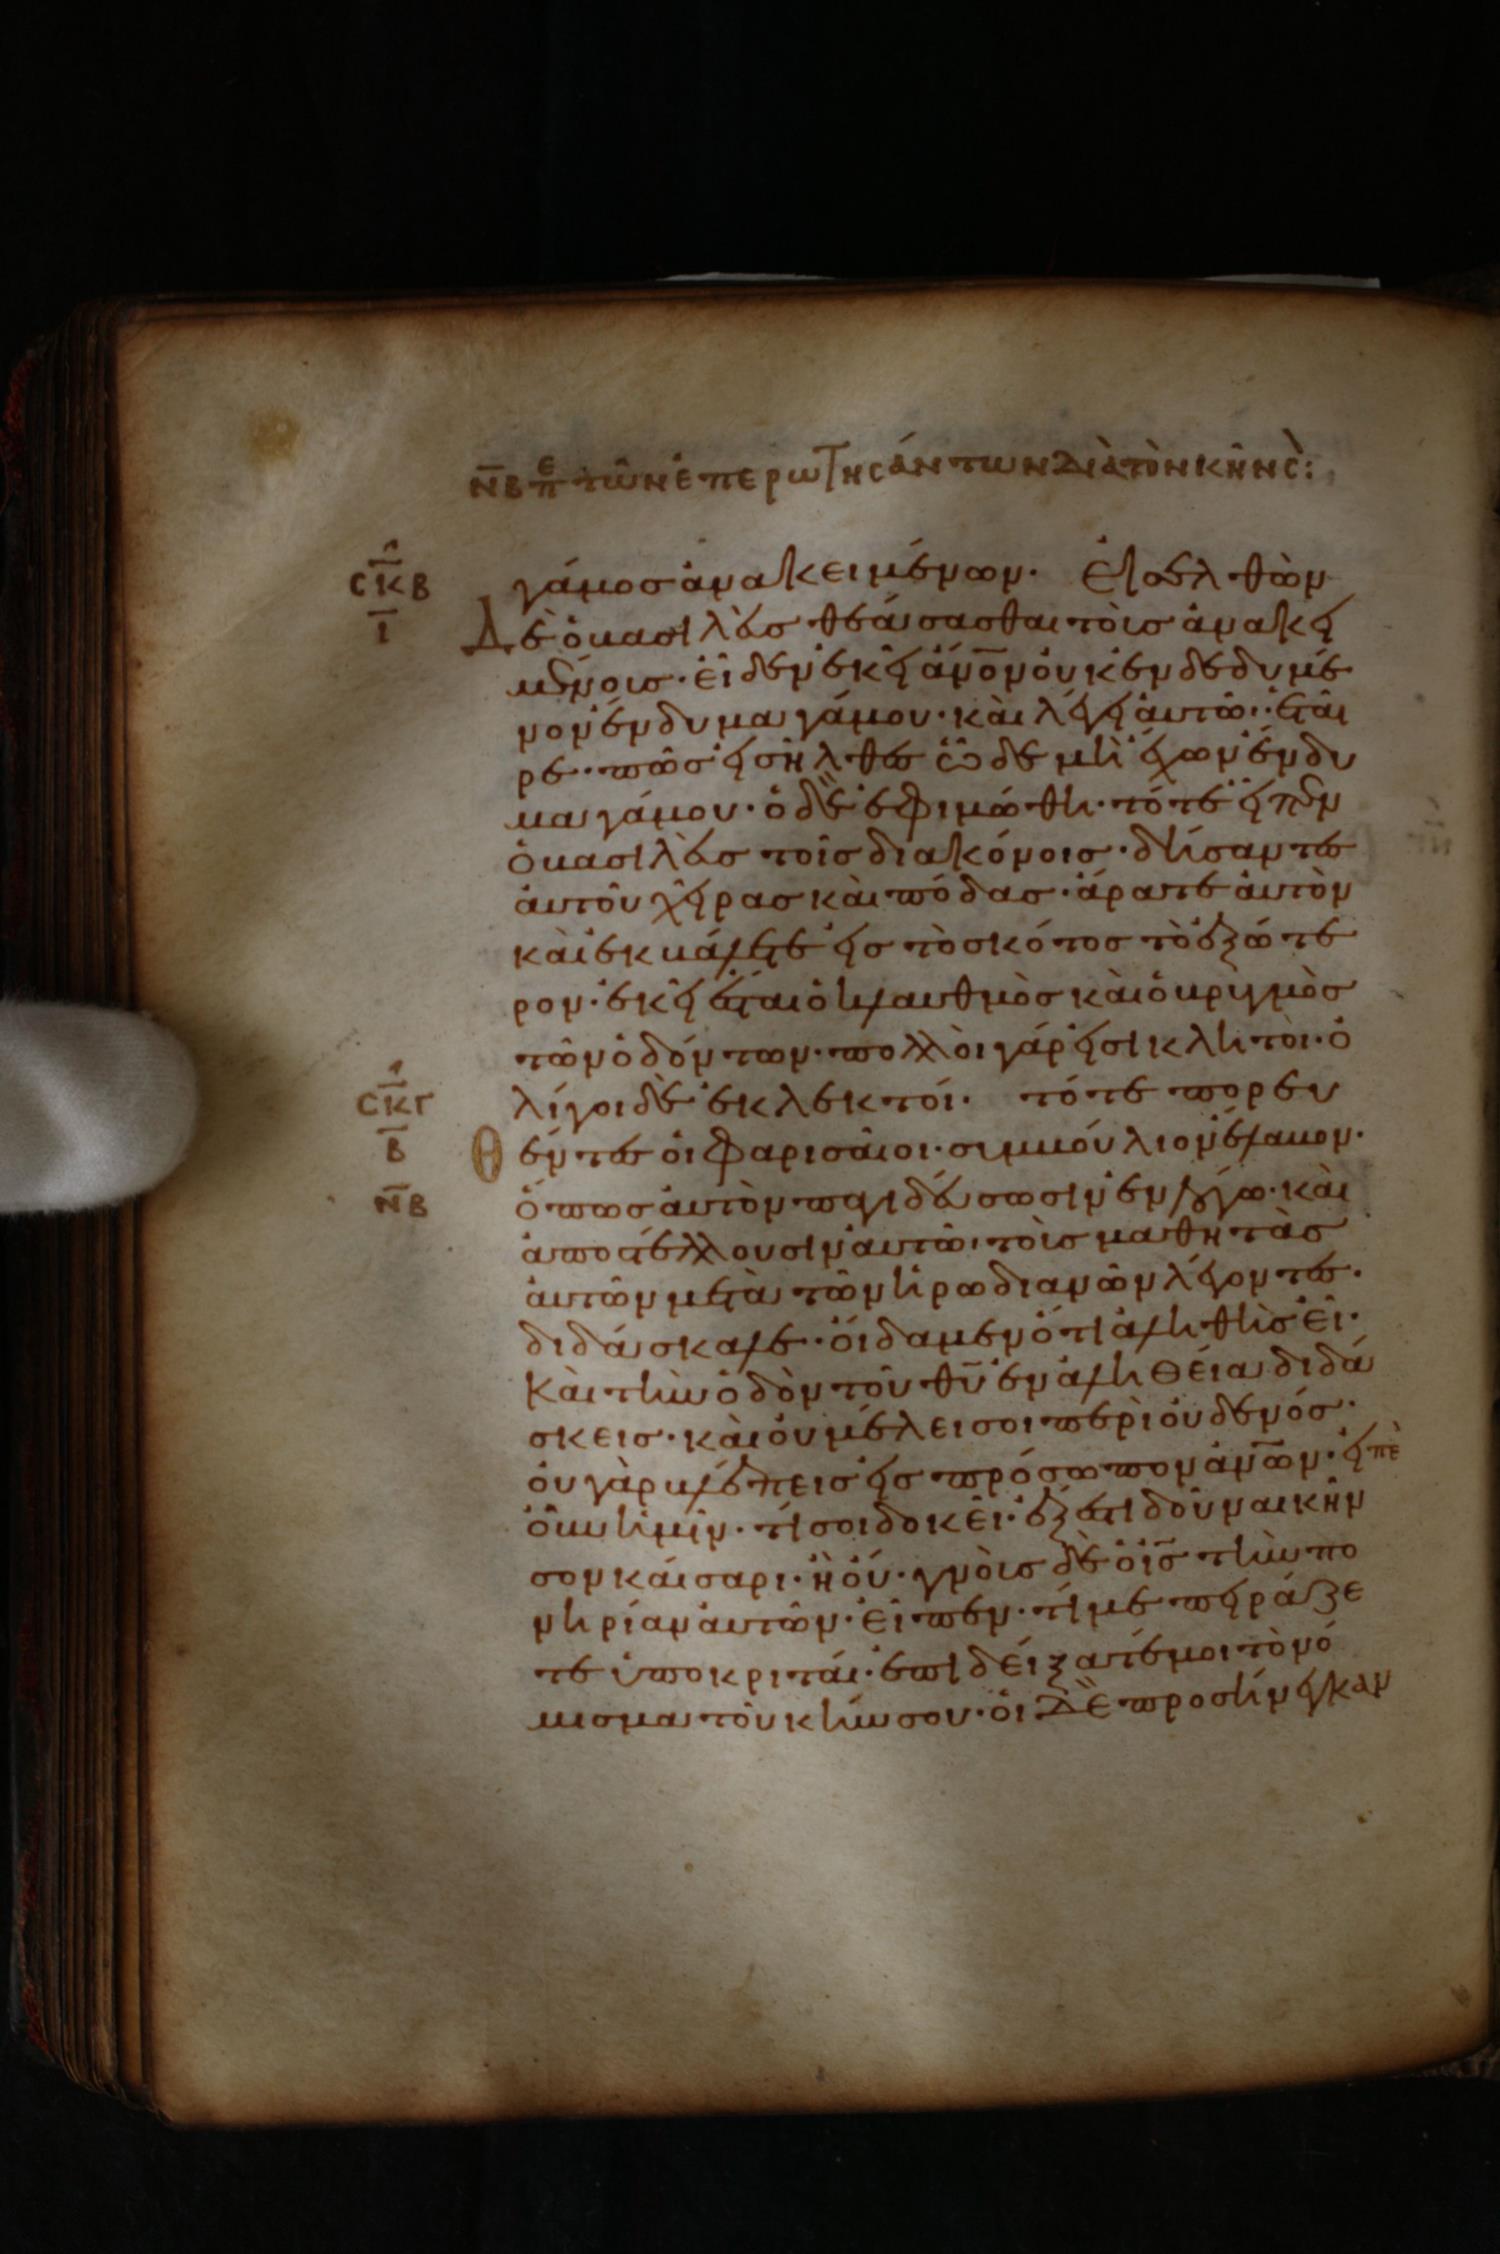 ΝΒ ΕΠ τῶν ἐπερωτησάντων διὰ τὸν κῆνσ:
ΣΚΒ
Ι
γάμος ἀνακειμένων· Ἐισελθὼν
δὲ ὁ βασιλεὺς θεάσασθαι τοὺς ἀνακει
μένους· εἶδεν ἐκεῖ ἄνον οὐκ ἐνδεδυμέ
νον ἔνδυμα γάμου· καὶ λέγει αὐτῶ· ἑταῖ
ρε· πῶς εἰσῆλθες ὧδε μὴ ἔχων ἔνδυ
μα γάμου· ὁ δὲ ἐφιμώθη· τότε εἶπεν
ὁ βασιλεὺς τοῖς διακόνοις· δήσαντες
αὐτοῦ χεῖρας καὶ πόδας· ἄρατε αὐτὸν
καὶ ἐκβάλετε εἰς τὸ σκότος τὸ ἐξώτε
ρον· ἐκεῖ ἔσται ὁ κλαυθμὸς καὶ ὁ βρυγμὸς
τῶν ὀδόντων· πολλοὶ γάρ εἰσι κλητοὶ· ὀ
ΣΚΓ
Β
ΝΒ
λίγοι δὲ ἐκλεκτοί· τότε πορευ
Θέντες οἱ φαρισαῖοι· συμβούλιον ἔλαβον·
ὅπως αὐτὸν παγιδεύσωσιν ἐν λόγω· καὶ
ἀποστέλλουσιν αὐτῶ· τοὺς μαθητὰς
αὐτῶν μετὰ τῶν ἡρωδιανῶν λέγοντες·
διδάσκαλε· οἴδαμεν ὅτι ἀληθὴς εἶ·
καὶ τὴν ὁδὸν τοῦ θῦ ἐν ἀληθεία διδά
σκεις· καὶ οὐ μέλει σοι περὶ οὐδενός·
οὐ γὰρ βλέπεις εἰς πρόσωπον ἀνῶν· εἰπὲ
οὖν ἡμῖν· τί σοι δοκεῖ· ἔξεστι δοῦναι κῆν
σον καίσαρι· ἢ οὔ· γνοὺς δὲ ὁ ις τὴν πο
νηρίαν αὐτῶν· εἶπεν· τί με πειράζε
τε ὑποκριταί· ἐπιδείξατέ μοι τὸ νό
μισμα τοῦ κήνσου· οἱ δὲ προσήνεγκαν